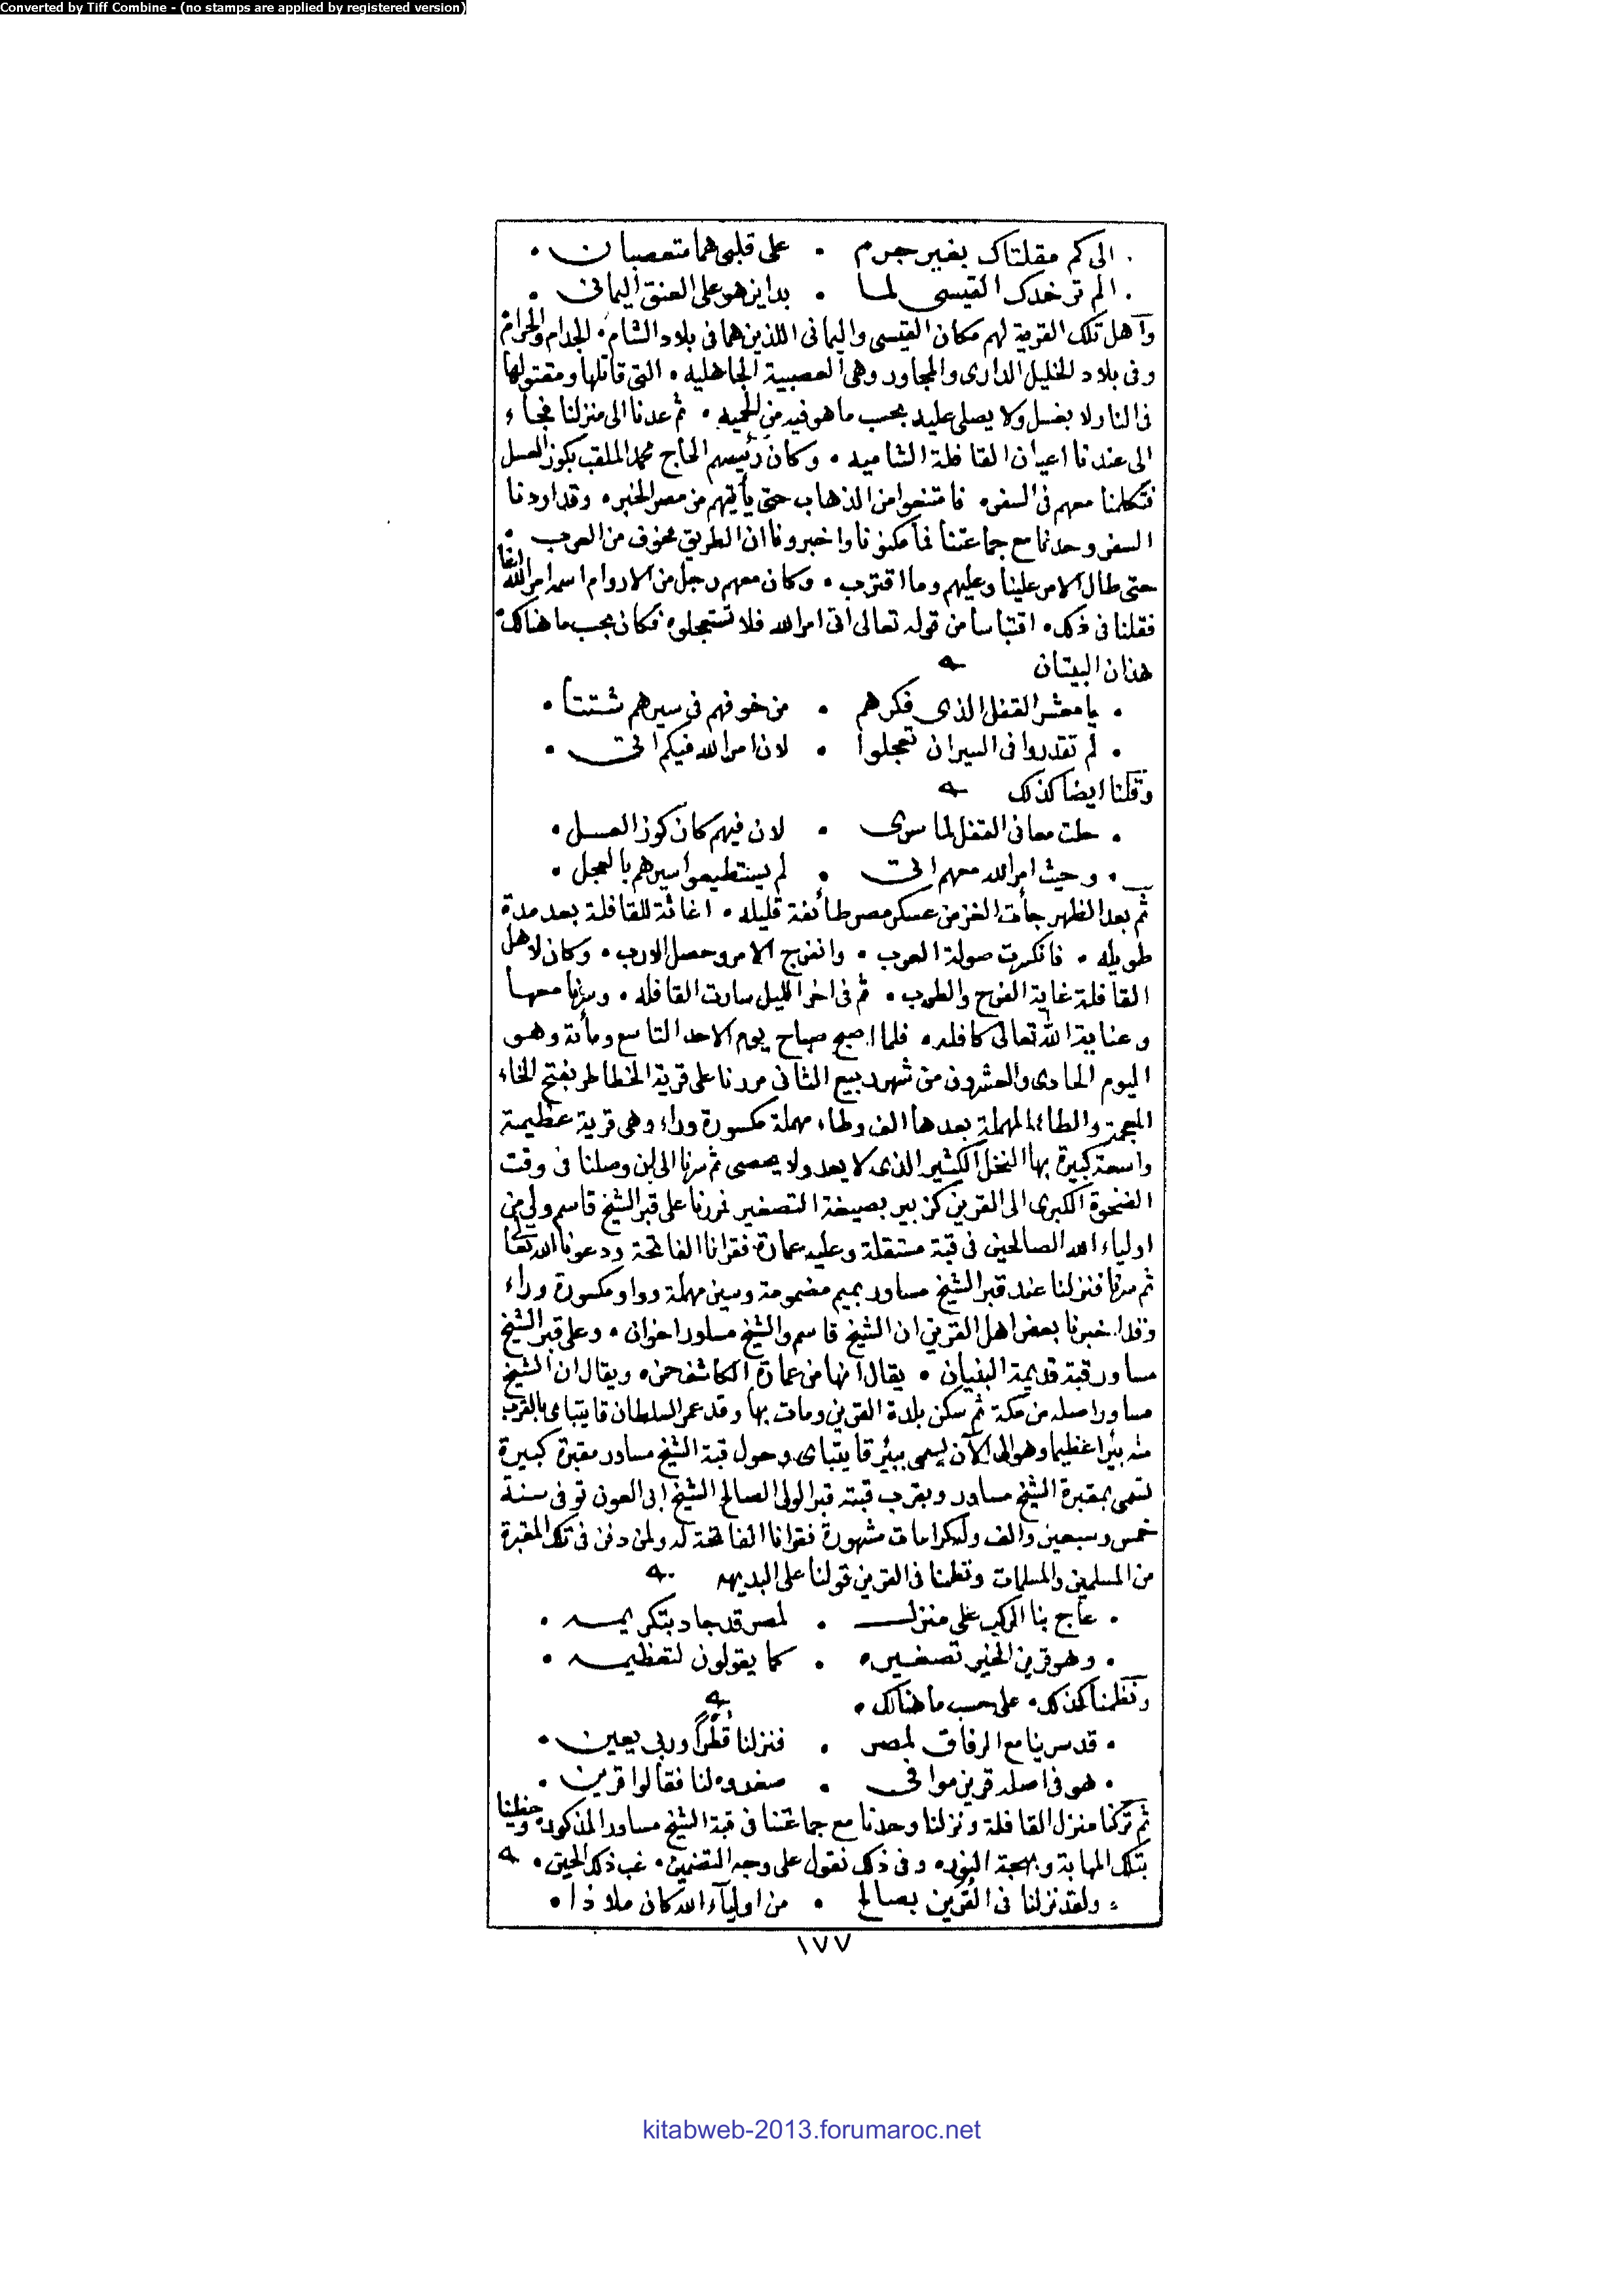 Converted by Tiff Combine - (no stamps are applied by registered version)
. الى كم مقلتاك بغير جرم . على قلبى هما متعصبان .
. الم تر خدك القيسى لما . بدا يزهو على العنق اليمانى .
وآهل تلك القرية لهم مكان القيسى واليمانى اللذين هما فى بلاد الشام . الجدام والحرام
وفى بلاد الخليل الدارى والمجاور وهى العصبية الجاهليه . التى قاتلها ومقتولها
فى النار لا يغسل ولا يصلى عليه بحسب ما هو فيه من الحميه . ثم عدنا الى منزلنا فجاء
الى عندنا اعيان القافلة الشاميه . وكان رئيسهم الحاج محمد الملقب بكوز العسل
فتكلمنا معهم فى السفر . فامتنعوا من الذهاب حتى يأتيهم من مصر الخبر . وقد اردنا
السفر وحدنا مع جماعتنا فما مكنونا واخبرونا ان الطريق مخوف من العرب .
حتى طال الامر علينا وعليهم وما اقترب . وكان معهم رجل من الاروام اسمه امر الله اغا
فقلنا فى ذلك . اقتباسا من قوله تعالى اتى امر الله فلا تستعجلوه فكان بحسب ما هناك .
هذان البيتان
. يا معشر القفل الذى فكرهم . من خوفهم فى سيرهم شتتا .
. لم تقدروا فى السير ان تعجلوا . لان امر الله فيكم اتى .
وقلنا ايضا كذلك
. حلت معانى القفل لما سرى . لان فيهم كان كوز العسل .
. وحيث امر الله معهم اتى . لم يستطيعوا سيرهم بالعجل .
ثم بعد الظهر جأت الغز من عسكر مصر طائفة قليله . اغاثة للقافلة بعد مدة
طويله . فانكسرت صولة العرب . وانفرج الامر وحصل الارب . وكان لاهل
القافلة غاية الفرح والطرب . ثم فى اخر الليل سارت القافله . وسرنا معها
وعناية الله تعالى كافله . فلما اصبح صباح يوم الاحد التاسع ومأة وهو
اليوم الحادى والعشرون من شهر ربيع الثانى مررنا على قرية الخطاطر بفتح الخاء
المعجمة والطاء المهملة بعدها الف وطاء مهملة مكسورة وراء وهى قرية عظيمة
واسعة كبيرة بها النخل الكثير الذى لا يعد ولا يحصى ثم سرنا الى ان وصلنا فى وقت
الضحوة الكبرى الى القرين كزبير بصيغة التصغير فمررنا على قبر الشيخ قاسم ولى من
اولياء الله الصالحين فى قبة مستقلة وعليه عمارة فقرانا الفاتحة ودعونا الله تعالى
ثم سرنا فنزلنا عند قبر الشيخ مساور بميم مضمومة وسين مهملة وواو مكسورة وراء
وقد اخبرنا بعض اهل القرين ان الشيخ قاسم والشيخ مساور اخوان . وعلى قبر الشيخ
مساور قبة قديمة البنيان . يقال انها من عمارة الكاشف حمزه ويقال ان الشيخ
مساور اصله من مكة ثم سكن بلدة القرين ومات بها وقد عمر السلطان قايتباى بالقرب
منه بئرا عظيما وهو الى الآن يسمى ببئر قايتباى وحول قبة الشيخ مساور مقبرة كبيرة
تسمى بمقبرة الشيخ مساور وبقرب قبته قبر الولى الصالح الشيخ ابى العون توفى سنة
خمس وسبعين والف وله كرامات مشهورة فقرانا الفاتحة له ولمن دفن فى تلك المقبرة
من المسلمين والمسلمات ونظمنا فى القرين قولنا على البديهه .
. عاج بنا الركب على منزل . لمصر قد جاد بتكريمه .
. وهو قرين الخير تصغيره . كما يقولون لتعظيمه .
ونظمنا كذلك . على حسب ما هنالك .
. قد سرينا مع الرفاق لمصر . فنزلنا قطراً وربى يعين .
. هو فى اصله قرين موافى . صغروه لنا فقالوا قرين .
ثم تركنا منزل القافلة ونزلنا وحدنا مع جماعتنا فى قبة الشيخ مساور المذكور . وحظينا
بتلك المهابة وبهجة النور . وفى ذلك نقول على وجه التضمين . غب ذلك الحين .
. ولقد نزلنا فى القُرين بصالح . من اوليآء الله كان ملاذا .
١٧٧
kitabweb-2013.forumaroc.net